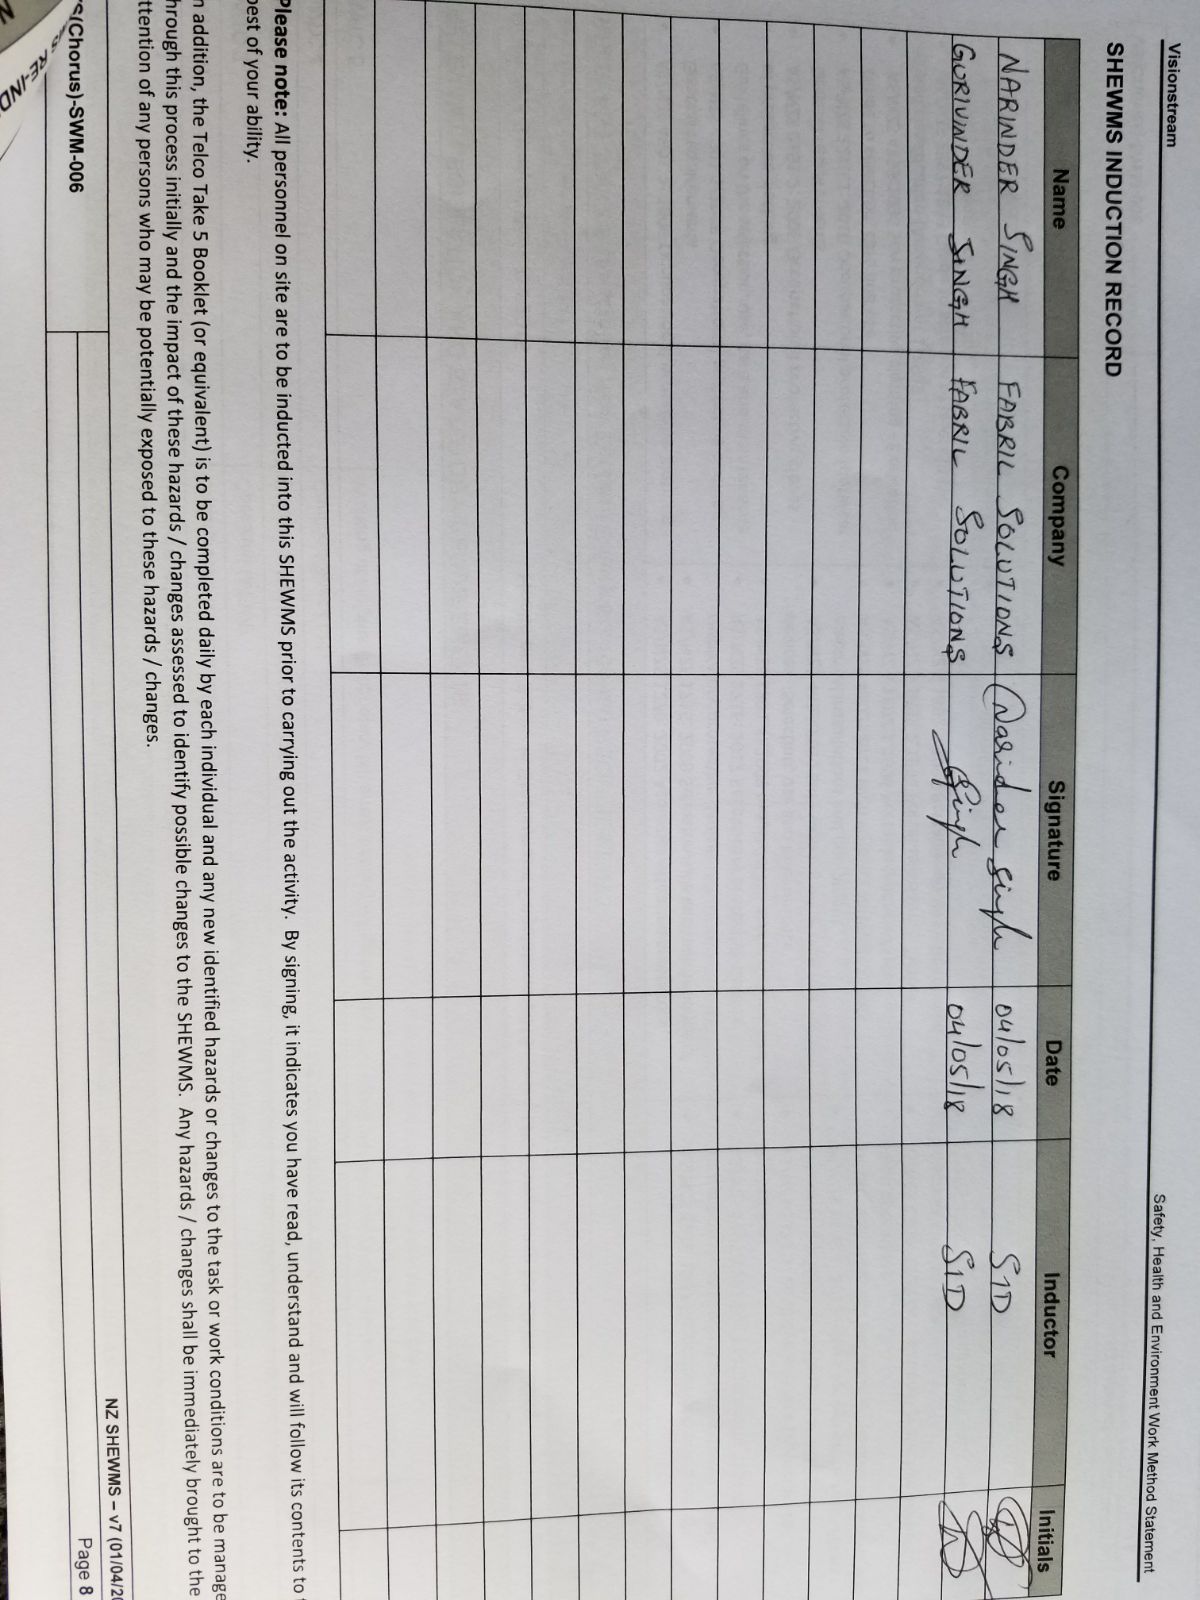 Visionstream
Safety, Health and Environment Work Method Statement
SHEWMS INDUCTION RECORD
Name Company Signature Date Inductor Initials
NARINDER SINGH FABRIL SOLUTIONS Narinder Singh 04/05/18 SID
GURIVINDER SINGH FABRIL SOLUTIONS Singh 04/05/18 SID
Please note: All personnel on site are to be inducted into this SHEWMS prior to carrying out the activity. By signing, it indicates you have read, understand and will follow its contents to
best of your ability.
n addition, the Telco Take 5 Booklet (or equivalent) is to be completed daily by each individual and any new identified hazards or changes to the task or work conditions are to be manage
hrough this process initially and the impact of these hazards / changes assessed to identify possible changes to the SHEWMS. Any hazards / changes shall be immediately brought to the
ttention of any persons who may be potentially exposed to these hazards / changes.
NZ SHEWMS – v7 (01/04/20
S(Chorus)-SWM-006
Page 8
RE-IND